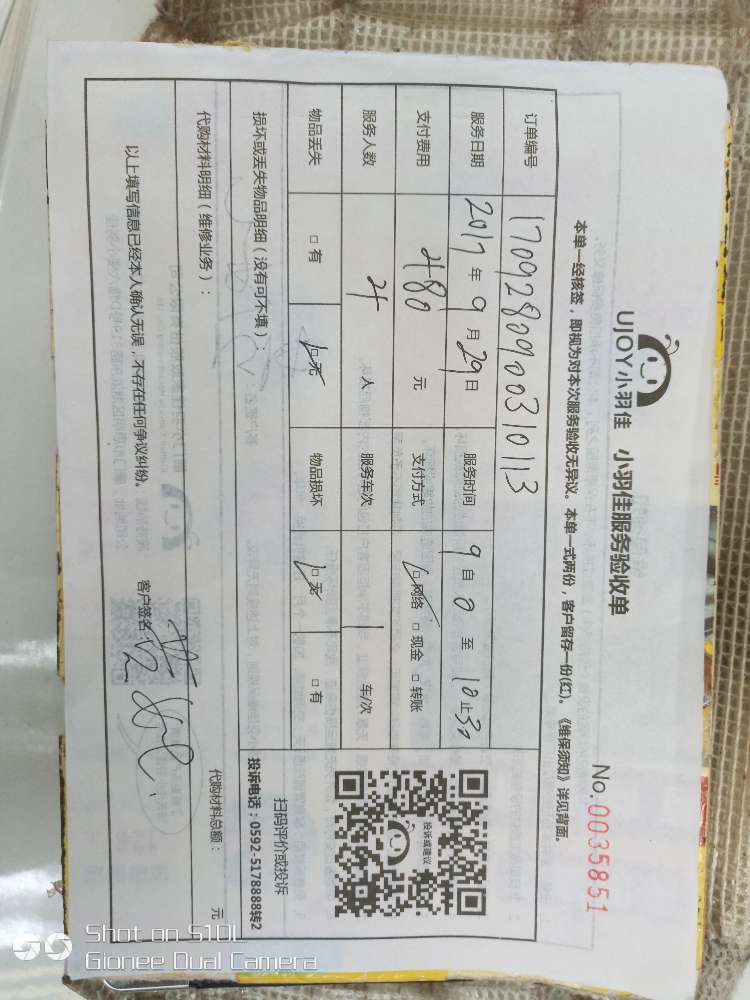 UJOY小羽佳 小羽佳服务验收单
No. 0035851
本单一经核签，即视为对本次服务验收无异议。本单一式两份，客户留存一份(红)。《维保须知》详见背面。
订单编号 170928090310113
服务日期 2017年9月29日 服务时间 9自0至10止30
支付费用 480元 支付方式 网络 现金 转账
服务人数 4人 服务车次 1车/次
物品丢失 有 无 物品损坏 无 有
投诉或建议
扫码评价或投诉
投诉电话：0592-5178888转2
损坏或丢失物品明细（没有可不填）：
代购材料明细（维修业务）： 代购材料总额： 元
以上填写信息已经本人确认无误，不存在任何争议纠纷。 客户签名：
Shot on S10L
Gionee Dual Camera